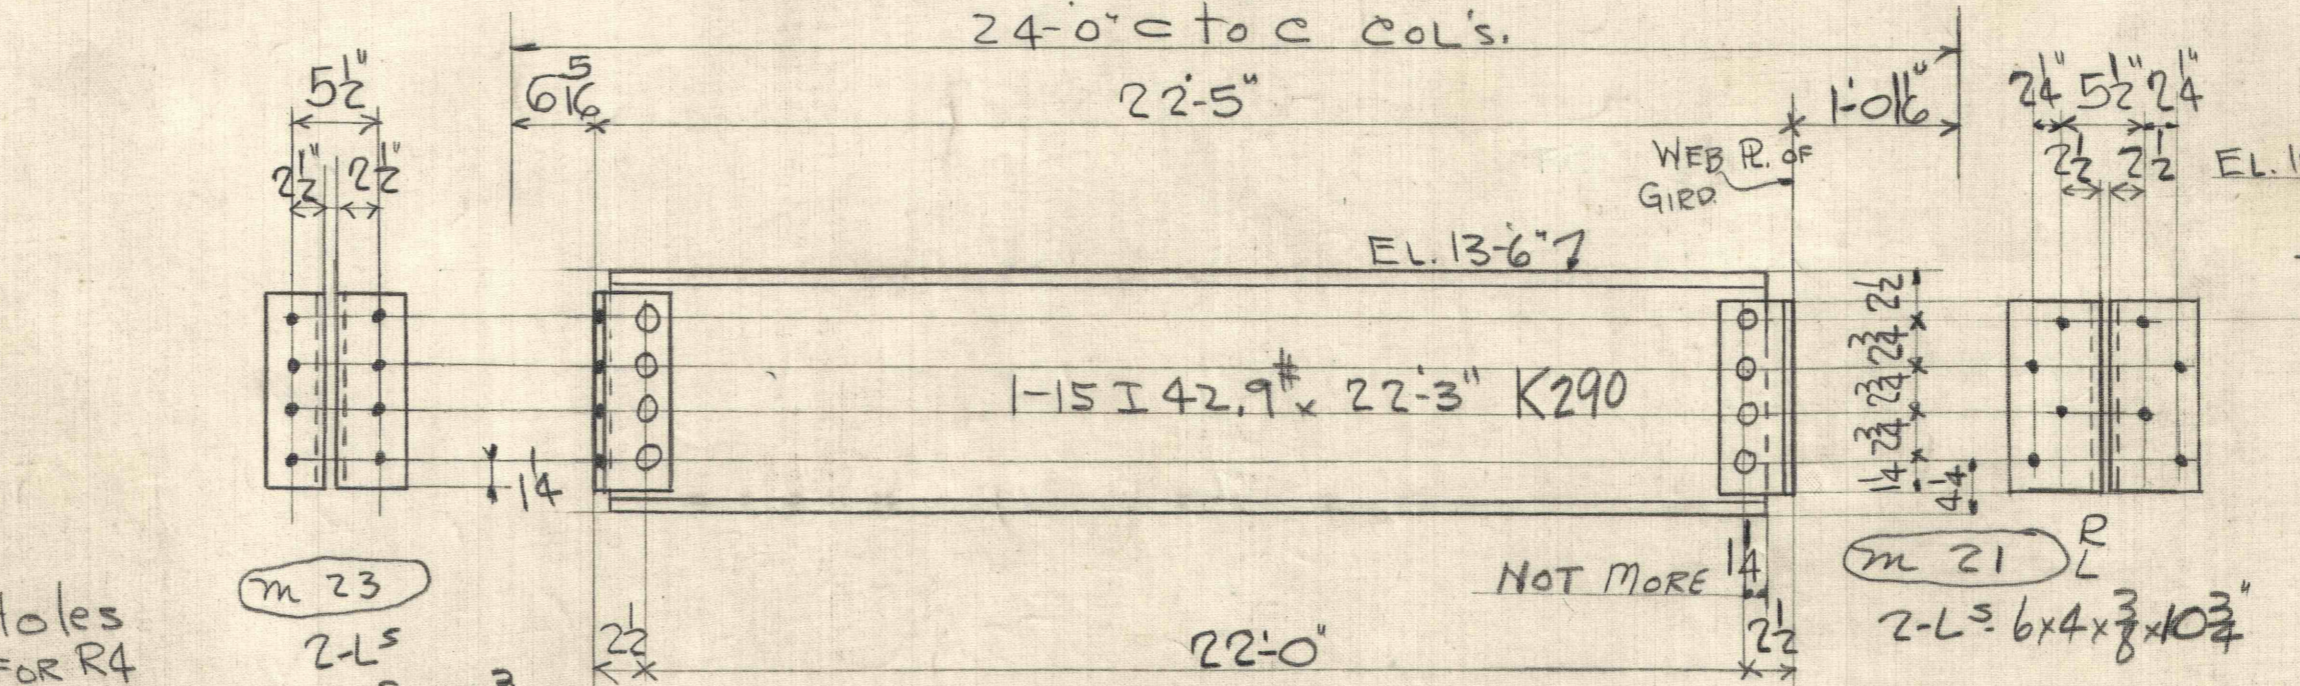 24-0" C to C COL's.
5 1/2"
6 5/16
22'-5"
1'-0 11/16"
2 1/4" 5 1/2" 2 1/4"
2 1/2" 2 1/2"
WEB PL. OF
GIRD.
2 1/2 2 1/2
EL. 1
EL. 13'-6"
2 1/2
2 3/4
2 3/4
2 3/4
1 1/4
4 1/4
1-15 I 42.9# x 22'-3" K290
1 1/4
m 23
NOT MORE 1 1/4
m 21 R
L
Holes
FOR R4
2-Ls
2 1/2
22'-0"
2 1/2
2-Ls. 6x4x3/8x10 3/4"